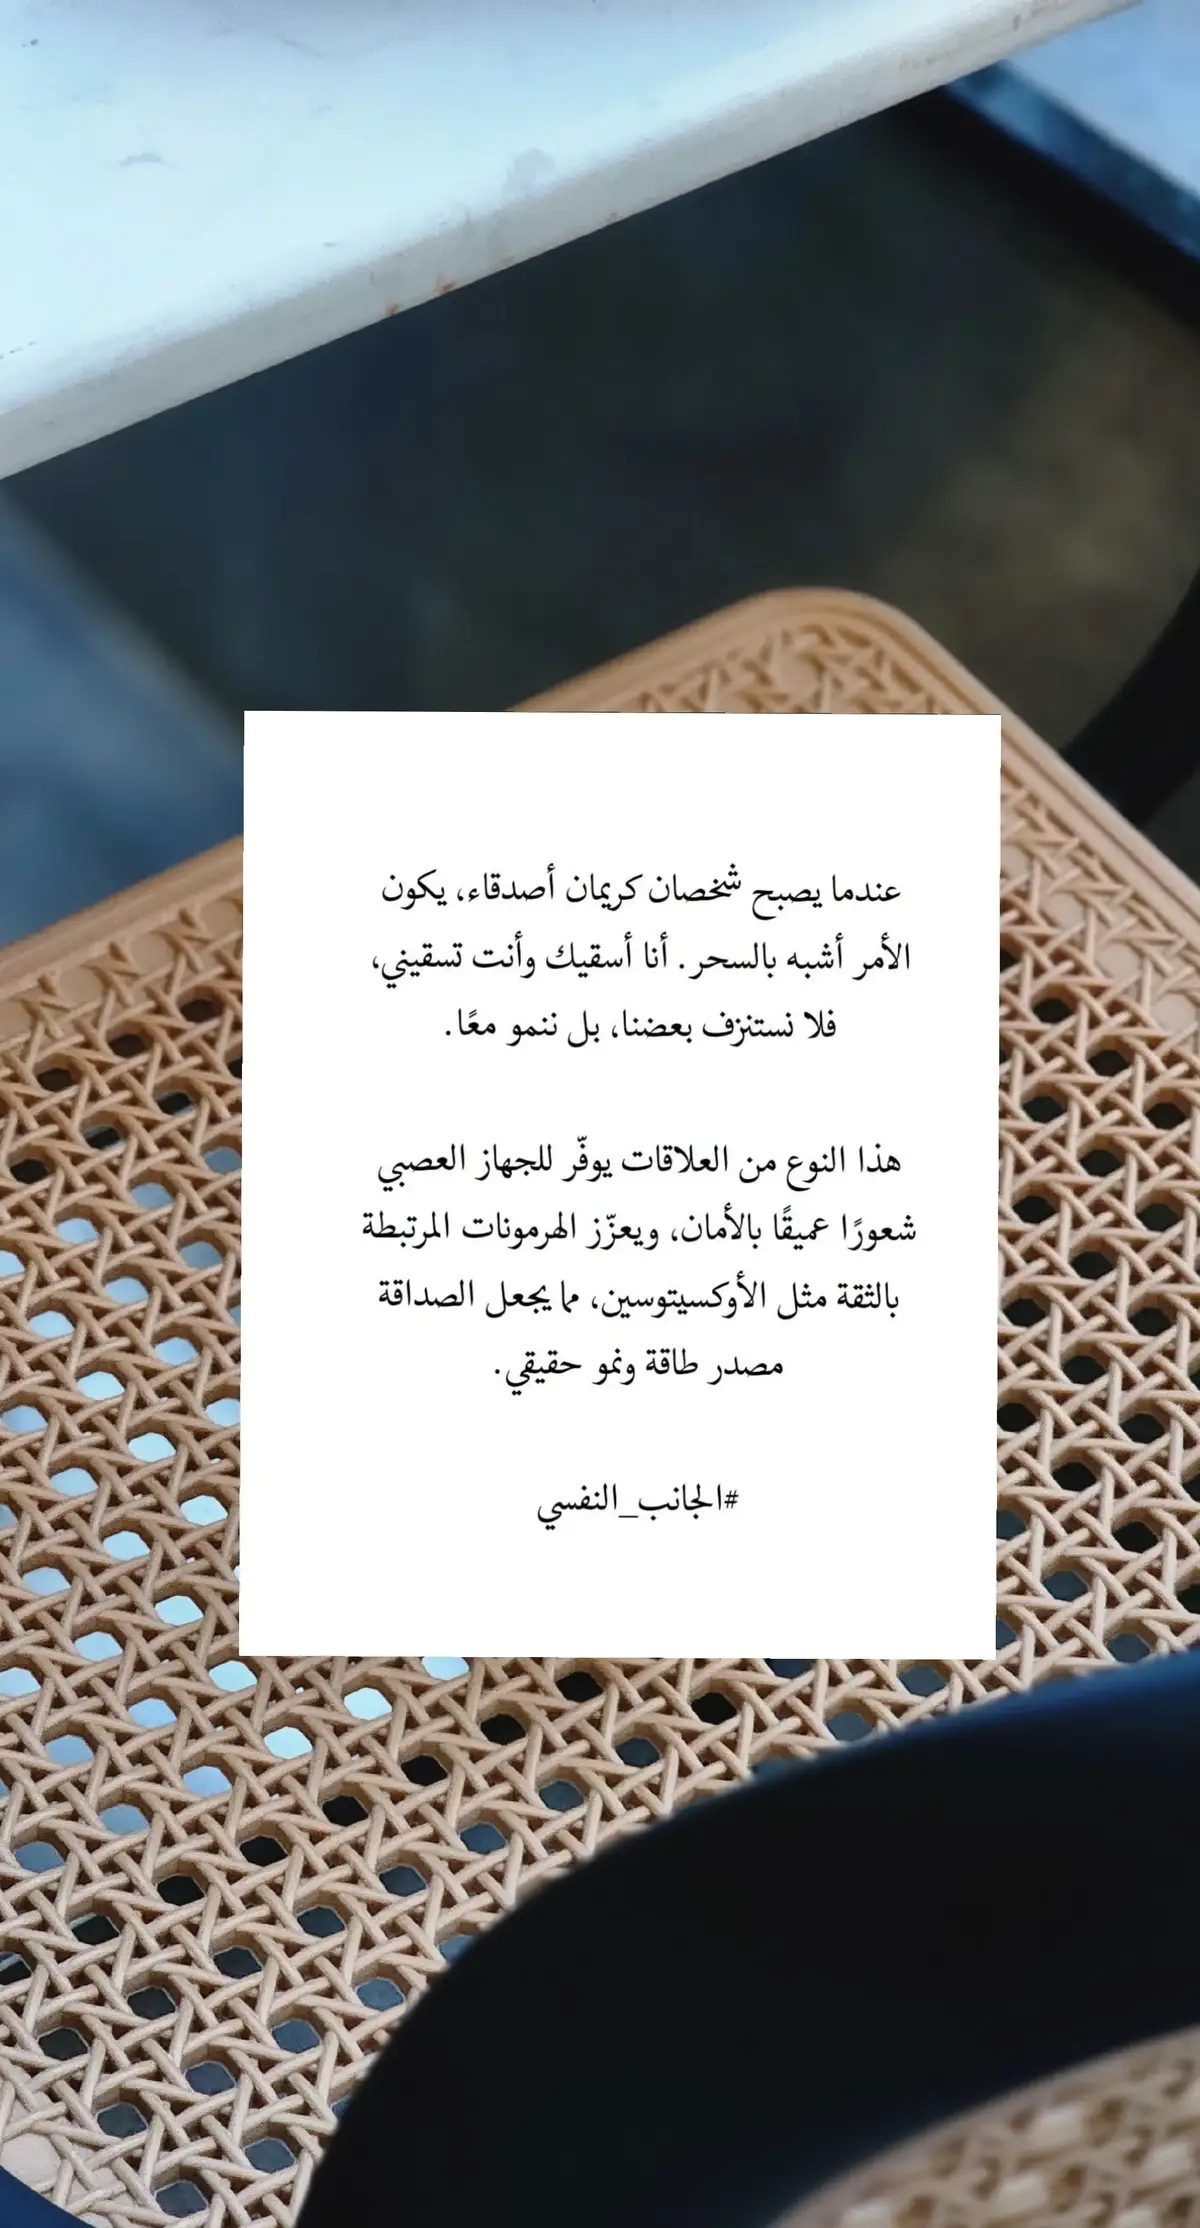 عندما يصبح شخصان كريمان أصدقاء، يكون
الأمر أشبه بالسحر. أنا أسقيك وأنت تسقيني،
فلا نستنزف بعضنا، بل ننمو معًا.
هذا النوع من العلاقات يوفّر للجهاز العصبي
شعورًا عميقًا بالأمان، ويعزّز الهرمونات المرتبطة
بالثقة مثل الأوكسيتوسين، مما يجعل الصداقة
مصدر طاقة ونمو حقيقي.
#الجانب_النفسي